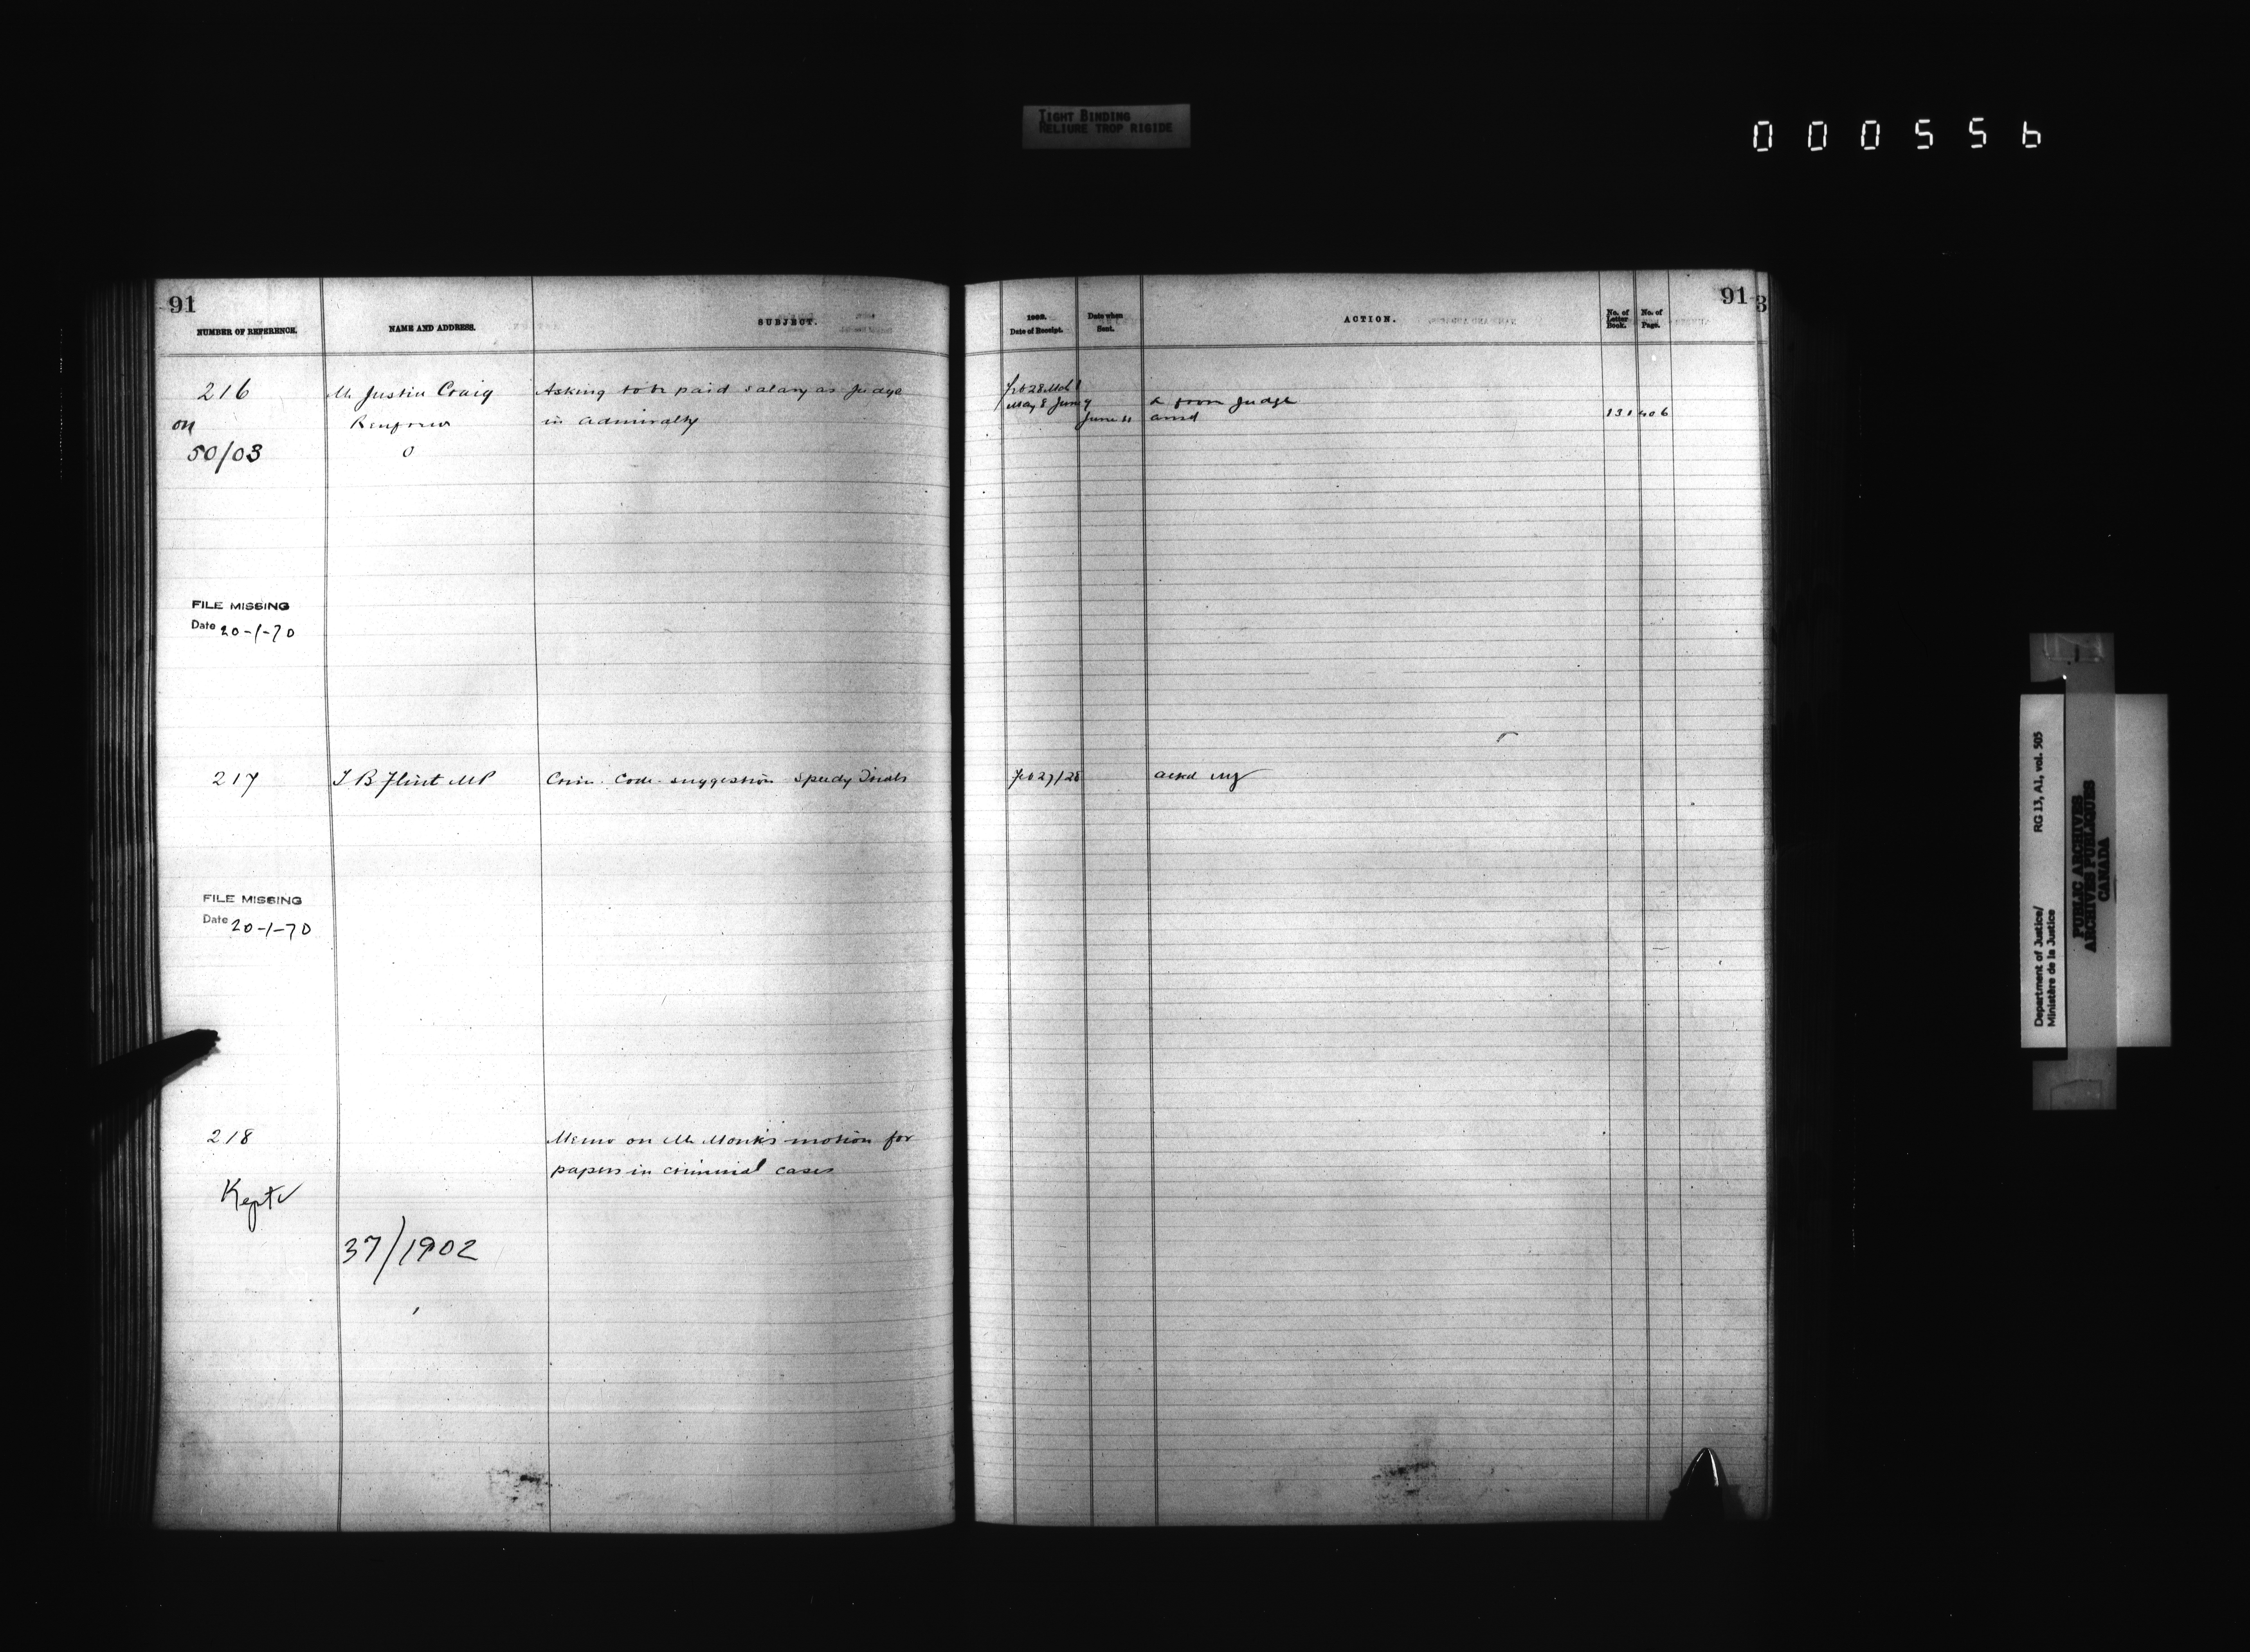 TIGHT BINDING
RELIURE TROP RIGIDE
000556
91
NUMBER OF REFERENCE.
NAME AND ADDRESS.
SUBJECT.
216
Mr Justice Craig
Asking to be paid salary as Judge
on
in Admiralty
50/03
FILE MISSING
Date 20-1-70
217
T B Flint MP
Crim. Code. suggestion Speedy Trials
FILE MISSING
Date 20-1-70
218
Memo on Mr Monk's motion for
papers in criminal cases
Kept
37/1902
91
3
1902.
Date of Receipt.
Date when
Sent.
ACTION.
No. of
Letter
Book.
No. of
Page.
Feb 28 Mch
May 8 June 9
from Judge
June 11
ansd
131
406
Feb 27/28
ackd
Department of Justice/
Ministère de la Justice
RG 13, A1, vol. 505
PUBLIC ARCHIVES
ARCHIVES PUBLIQUES
CANADA